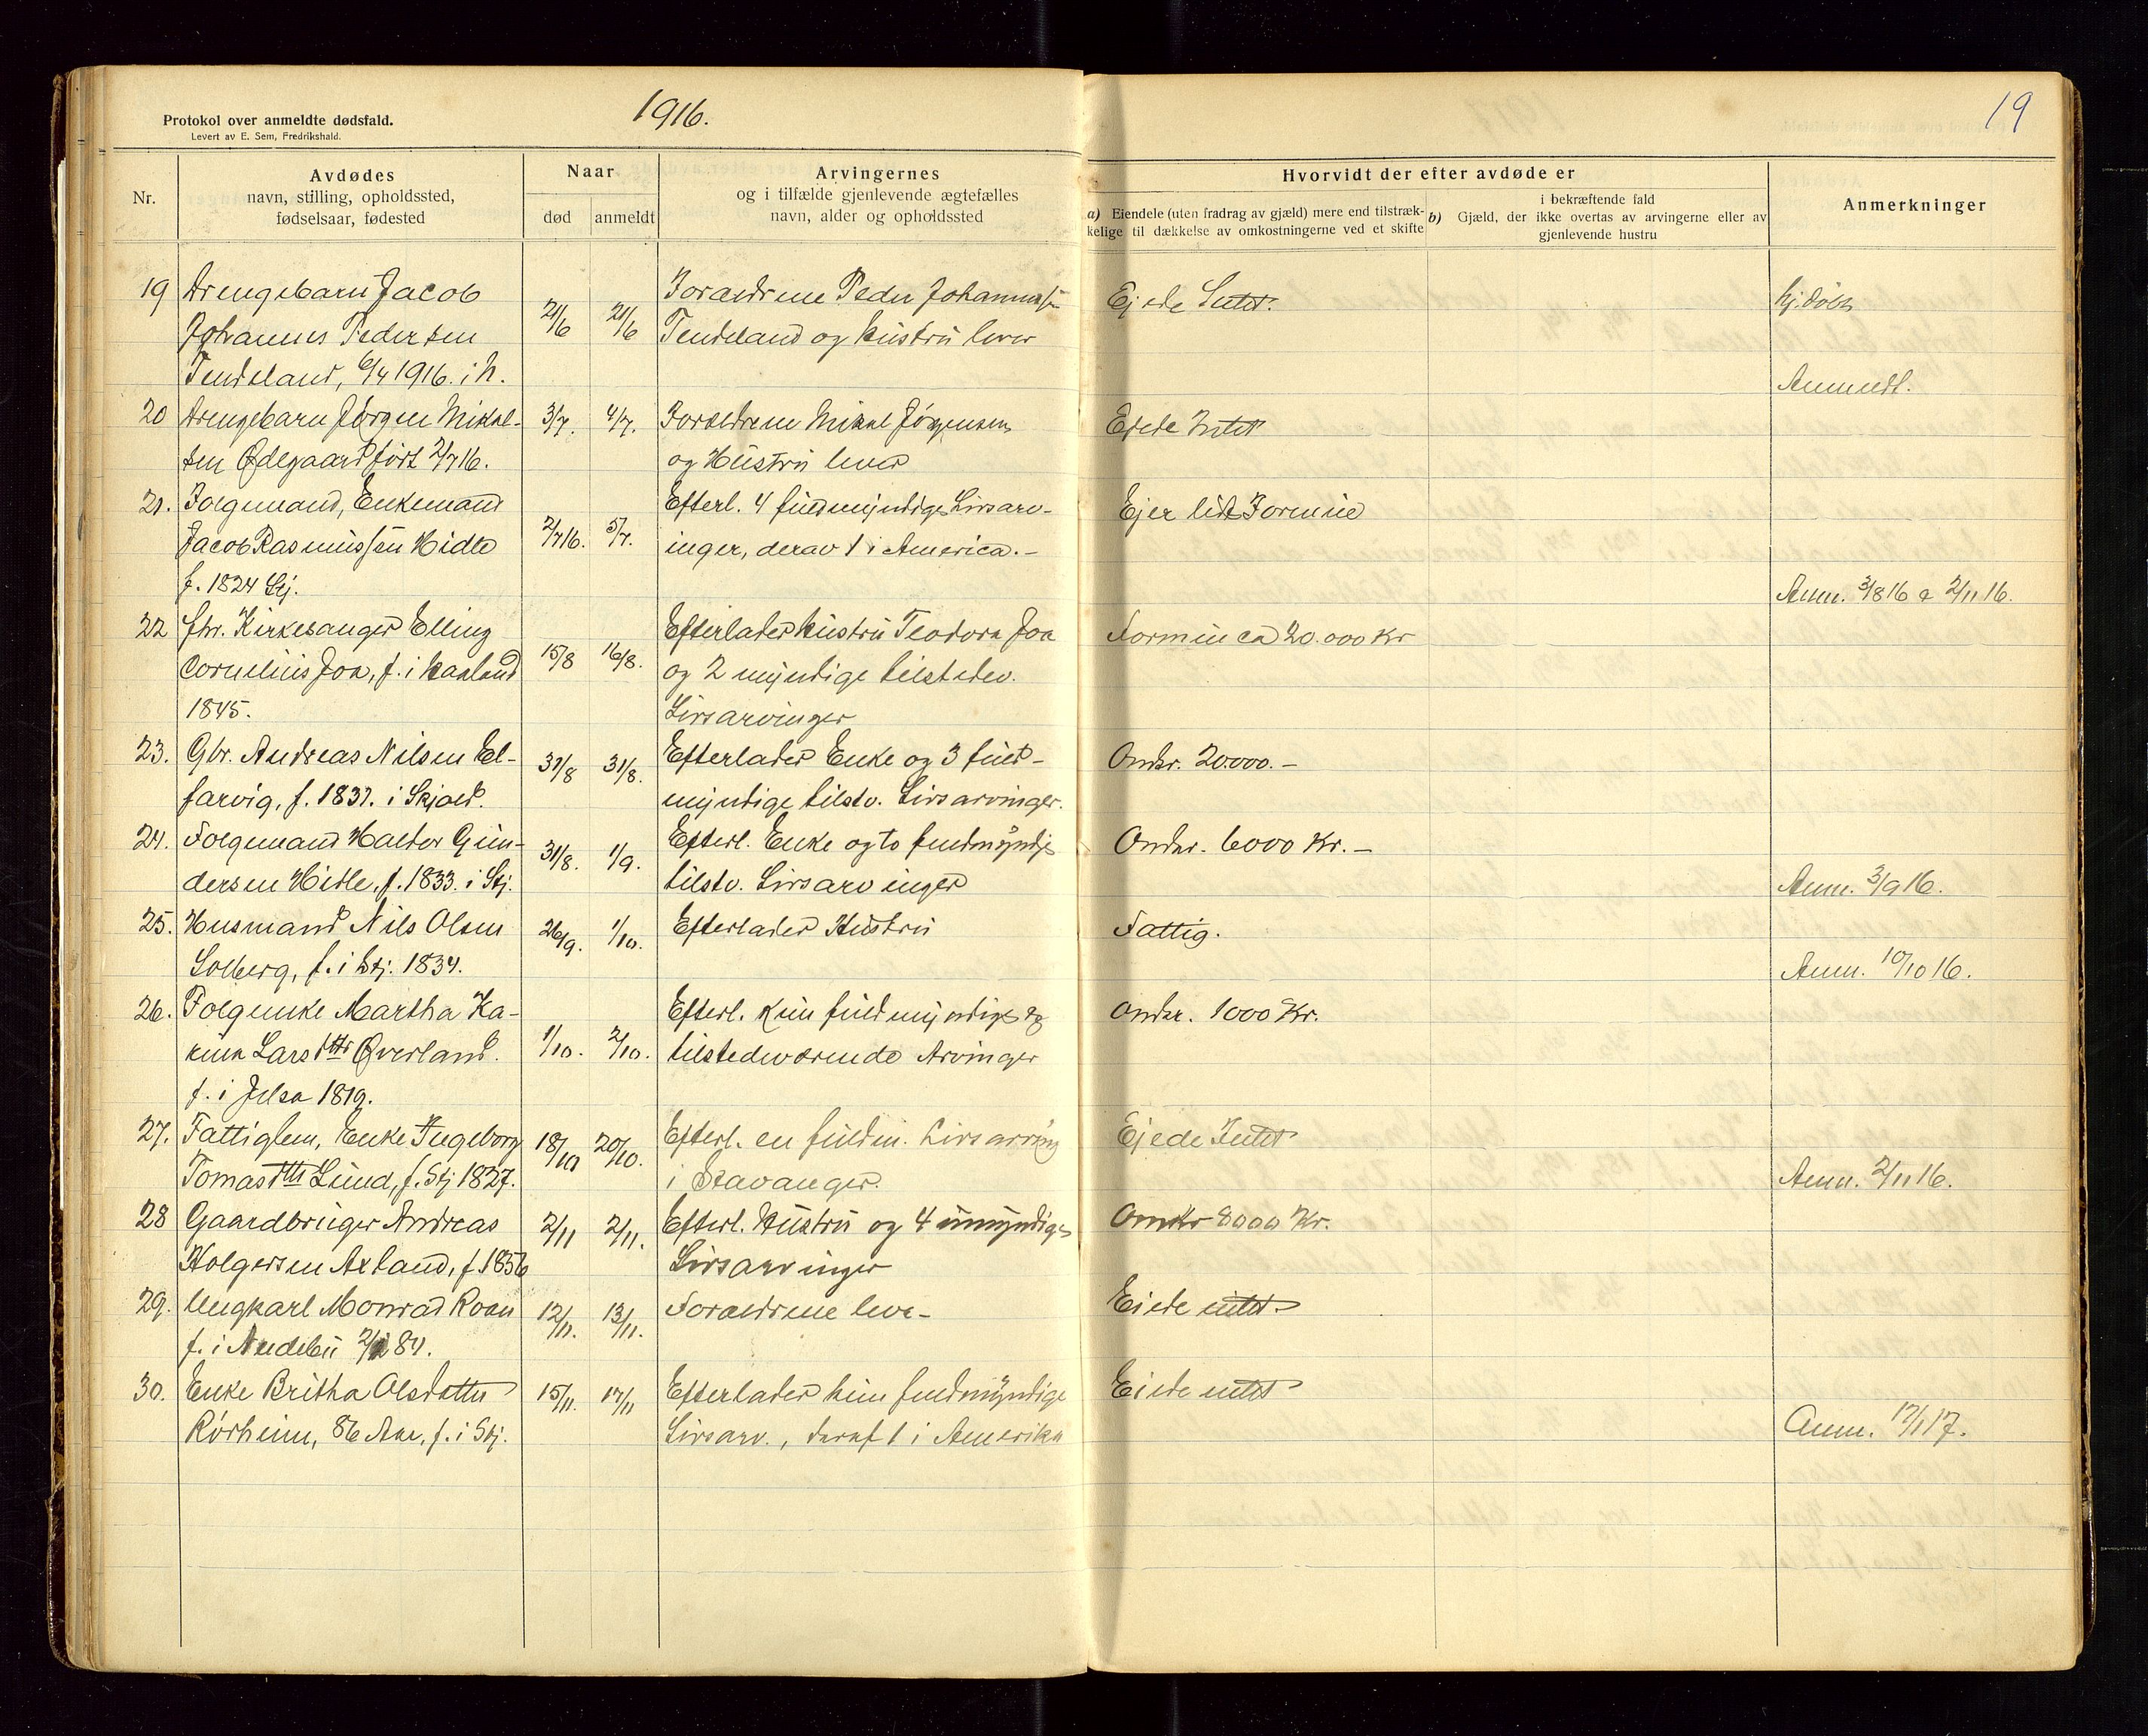 1916.
19
Protokol over anmeldte dødsfald.
Levert av E. Sem, Fredrikshald.
Nr.
Avdødes
navn, stilling, opholdssted,
fødselsaar, fødested
Naar
død
anmeldt
Arvingernes
og i tilfælde gjenlevende ægtefælles
navn, alder og opholdssted
Hvorvidt der efter avdøde er
a) Eiendele (uten fradrag av gjæld) mere end tilstræk-
kelige til dækkelse av omkostningerne ved et skifte
i bekræftende fald
b) Gjæld, der ikke overtas av arvingerne eller av
gjenlevende hustru
Anmerkninger
19 Drengebarn Jacob
Johannes Pedersen
Tendeland, 6/4 1916. i N.
21/6 21/6
Forældrene Peder Johannessen
Tendeland og hustru lever
Ejede Intet.
hj.døbt
Anmeldt.
20 Drengebarn Jørgen Mikal-
sen Ødegaard født 2/7 16.
3/7. 4/7.
Forældrene Mikal Jørgensen
og Hustru lever
Ejede Intet
21. Folgemand, Enkemand
Jacob Rasmussen Hidle
f. 1824 Skj.
2/7 16. 5/7.
Efterl. 4 fuldmyndige Livsarv-
inger, derav 1 i America. -
Ejer lidt Formue
Anm. 3/8 16 & 2/11 16.
22 fhv. Kirkesanger Elling
Cornelius Joa, f. i
1845.
15/8 16/8.
Efterlader hustru Teodora Joa
og 2 myndige tilstedev.
Livsarvinger
Formue ca 20.000 Kr
23. Gbr. Andreas Nilsen El-
farvig, f. 1837. i Skjold.
31/8 31/8.
Efterlader Enke og 3 fuld-
myndige tilstv. Livsarvinger.
Omkr. 20.000. -
24. Folgemand Haldor Gun-
dersen Hidle, f. 1833. i Skj.
31/8. 1/9.
Efterl. Enke og to fuldmyndige
tilstv. Livsarvinger
Omkr. 6000 Kr. -
Anm. 3/9 16.
25. Husmand Nils Olsen
Solberg, f. i Skj. 1834.
26/9. 1/10.
Efterlader Hustru
Fattig.
Anm. 10/10 16.
26. Folgeenke Martha Ka-
rina Larsdtr Øverland.
f. i Jelsa 1819.
1/10. 2/10.
Efterl. kun fuldmyndige og
tilstedeværende Arvinger
Omkr. 1000 Kr.
27. Fattiglem, Enke Ingeborg
Tomasdtr Lund, f. Skj 1827.
18/10 20/10.
Efterl. en fuldm. Livsarving
i Stavanger.
Ejede Intet
Anm. 2/11 16.
28 Gaardbruger Andreas
Holgersen Axland, f 1856
2/11 2/11.
Efterl. Hustru og 4 umyndige
Livsarvinger
Omkr 8000 Kr.
29. Ungkarl Monrad Roan
f. i 84.
12/11. 13/11.
Forældrene leve -
Eiede intet
30. Enke Britha Olsdatter
Rørheim, 86 Aar, f. i Skj.
15/11. 17/11
Efterlader kun fuldmyndige
Livsarv., daraf 1 i Amerika
Eiede intet
Anm. 17/1 17.